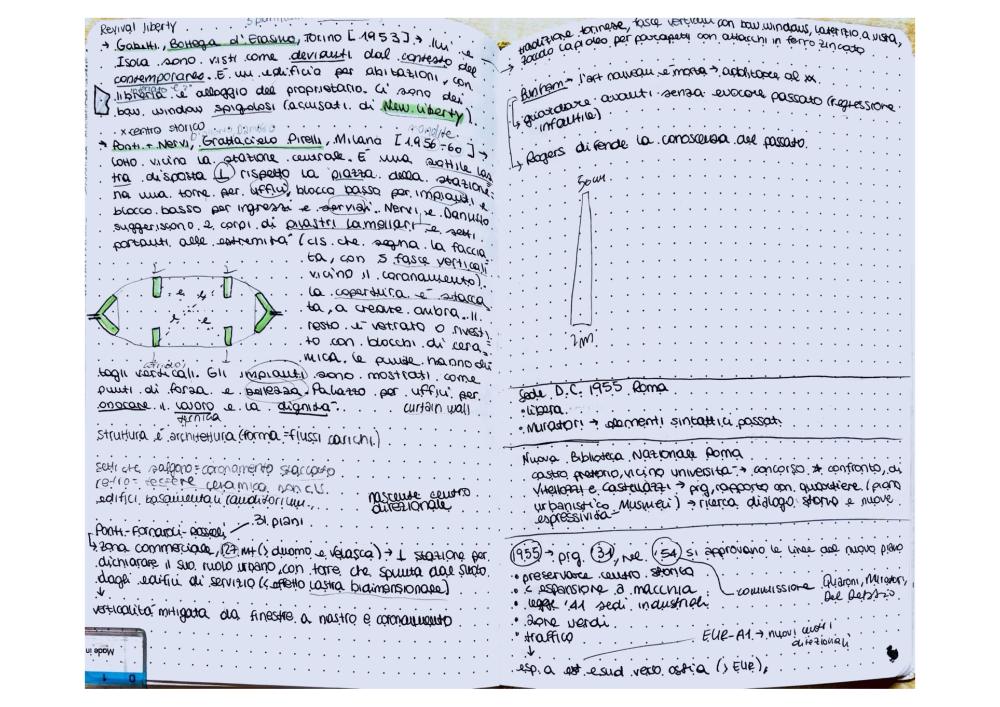 Revival liberty
→ Gabetti, Bottega d'Erasmo, Torino [1953] → lui e
Isola sono visti come devianti dal contesto del
contemporaneo. È un edificio per abitazioni, con
libreria e alloggio del proprietario. Ci sono dei
bow window spigolosi (accusati di New liberty).
x centro storico
→ Ponti + Nervi, Grattacielo Pirelli, Milano [1956-60] →
lotto vicino la stazione centrale. È una sottile las
tra disposta ⊥ rispetto la piazza della stazione:
ha una torre per uffici, blocco basso per impianti e
blocco basso per ingressi e servizi. Nervi e Danusso
suggeriscono 2 corpi di pilastri lamellari e setti
portanti alle estremità (cls che segna la faccia
ta, con 5 fasce verticali
vicino il coronamento).
la copertura è stacca
ta, a creare ombra. Il
resto è vetrato o rivesti
to con blocchi di cera=
mica. Le punte hanno dei
tagli verticali. Gli impianti sono mostrati come
punti di forza e bellezza. Palazzo per uffici per
onorare il lavoro e la dignità.
curtain wall
tecnica
struttura è architettura (forma = flussi carichi)
setti che salgono = coronamento staccato
retro = tessere ceramica non cls
edifici basamentali
nascente centro
direzionale
Ponti - Fornaroli - Rosselli
31 piani
zona commerciale, 127 mt (> duomo e velasca) → ⊥ stazione per
dichiarare il suo ruolo urbano, con torre che spunta dal suolo
dagli edifici di servizio (effetto lastra bidimensionale)
↓
verticalità mitigata da finestre a nastro e coronamento
Made in
0 1
tradizione torinese, fasce verticali con bow windows, laterizio a vista,
zoccolo lapideo, per parapetti con attacchi in ferro zincato
Banham → l'art nouveau è morta → architetture al xx.
guardare avanti senza evocare passato (regressione
infantile)
→ Rogers difende la conoscenza del passato.
50 cm
2 m
Sede D.C. 1955 Roma
• libera
• Muratori → elementi sintattici passati
Nuova Biblioteca Nazionale Roma
castro pretorio, vicino università → concorso * confronto di
Vitellozzi e Castellazzi → prg, rapporto con quartiere (piano
urbanistico Musmeci) → ricerca dialogo storia e nuove
espressività
1955 → prg 31, nel 54 si approvano le linee del nuovo piano
• preservare centro storico
commissione Quaroni, Muratori,
Del Debbio
• < espansione a macchia
• legge '41 sedi industriali
• zone verdi
• traffico
EUR-A1 → nuovi centri
direzionali
↓
esp. a est e sud verso ostia (> EUR),